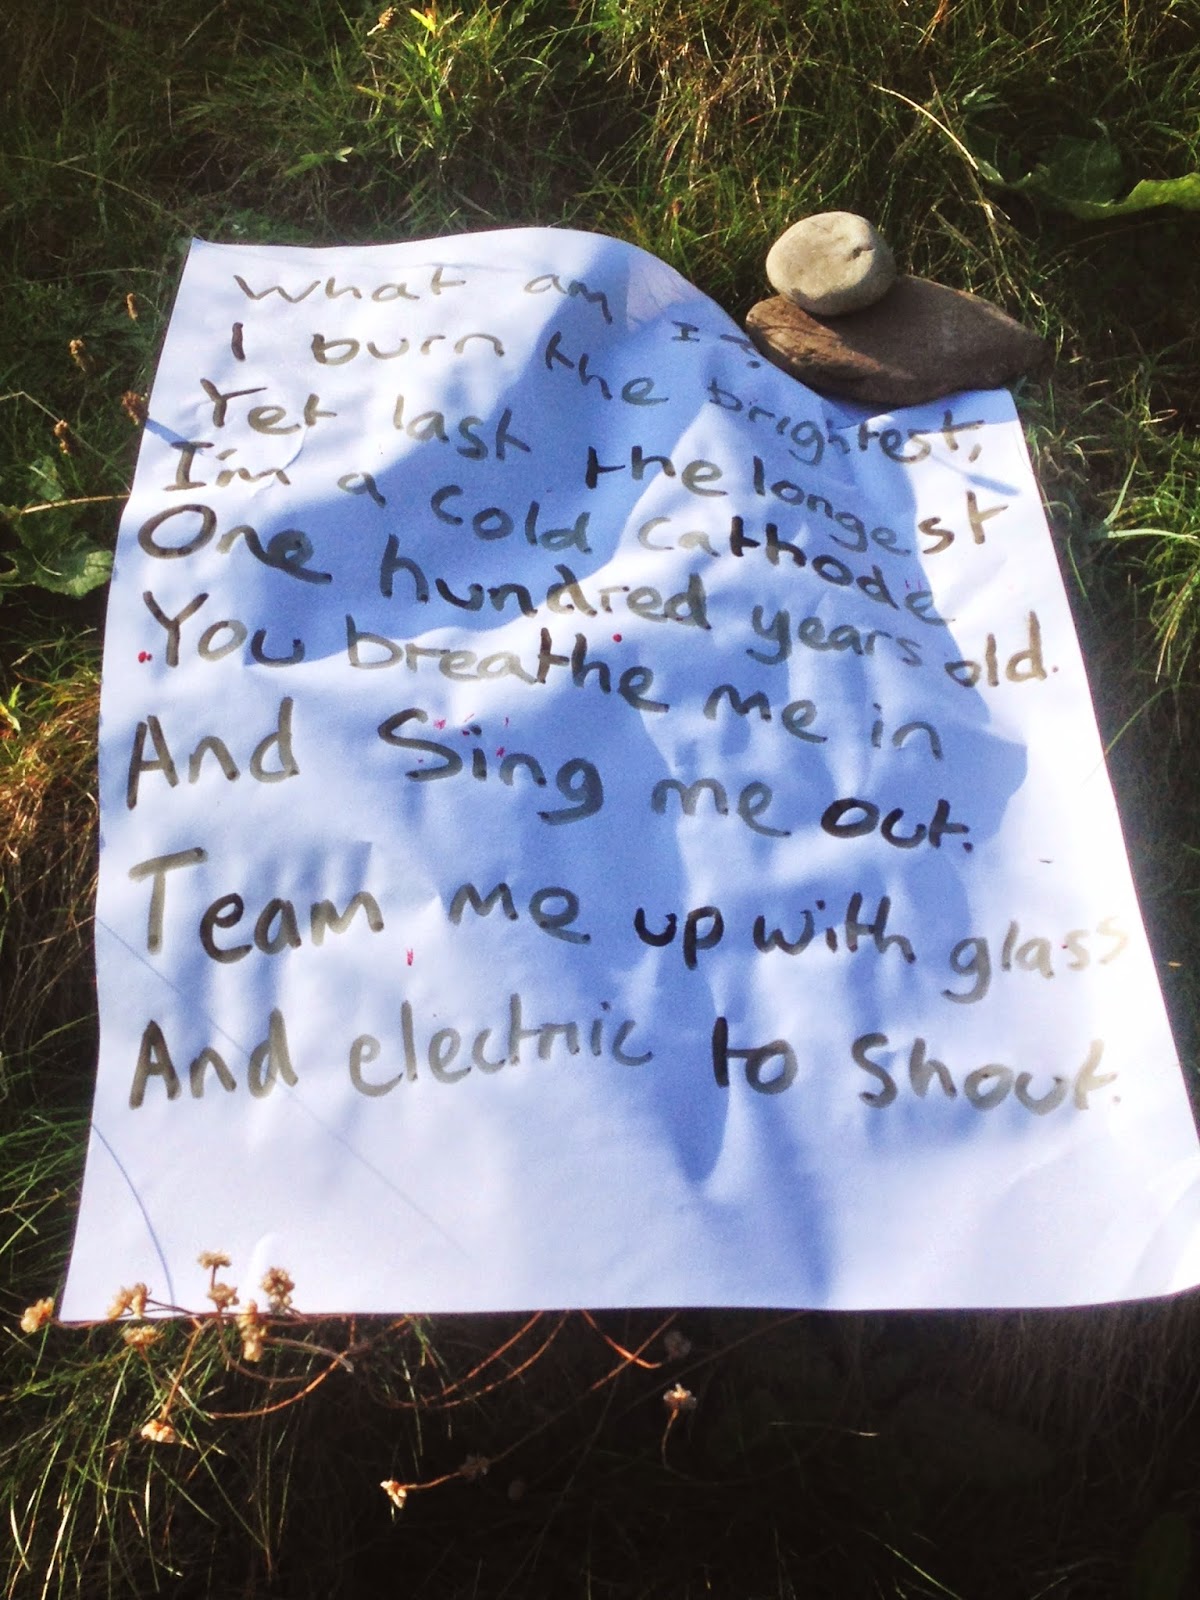 What am I?
I burn the brightest,
Yet last the longest
I'm a cold cathode
One hundred years old.
You breathe me in
And Sing me out.
Team me up with glass
And electric to Shout.